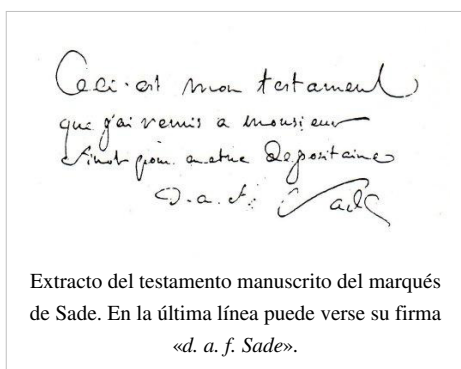 Ceci est mon testament
que j'ai remis a monsieur
Finot pour en etre Depositaire
D. a. f. Sade
Extracto del testamento manuscrito del marqués
de Sade. En la última línea puede verse su firma
«d. a. f. Sade».